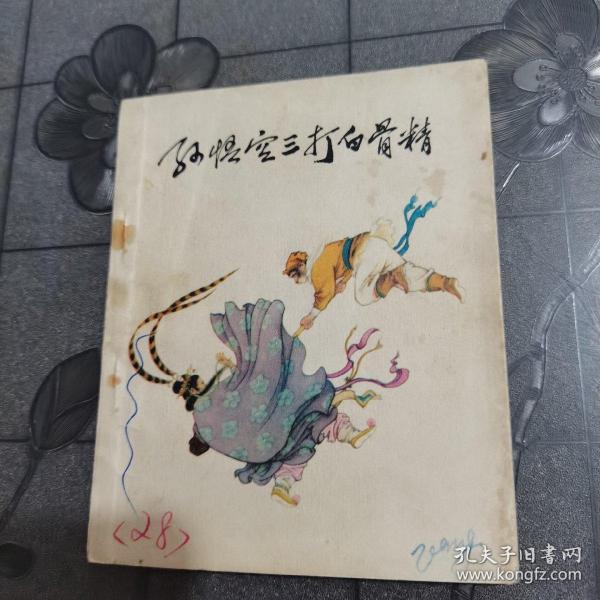 孙悟空三打白骨精
<28>
孔夫子旧书网
www.kongfz.com